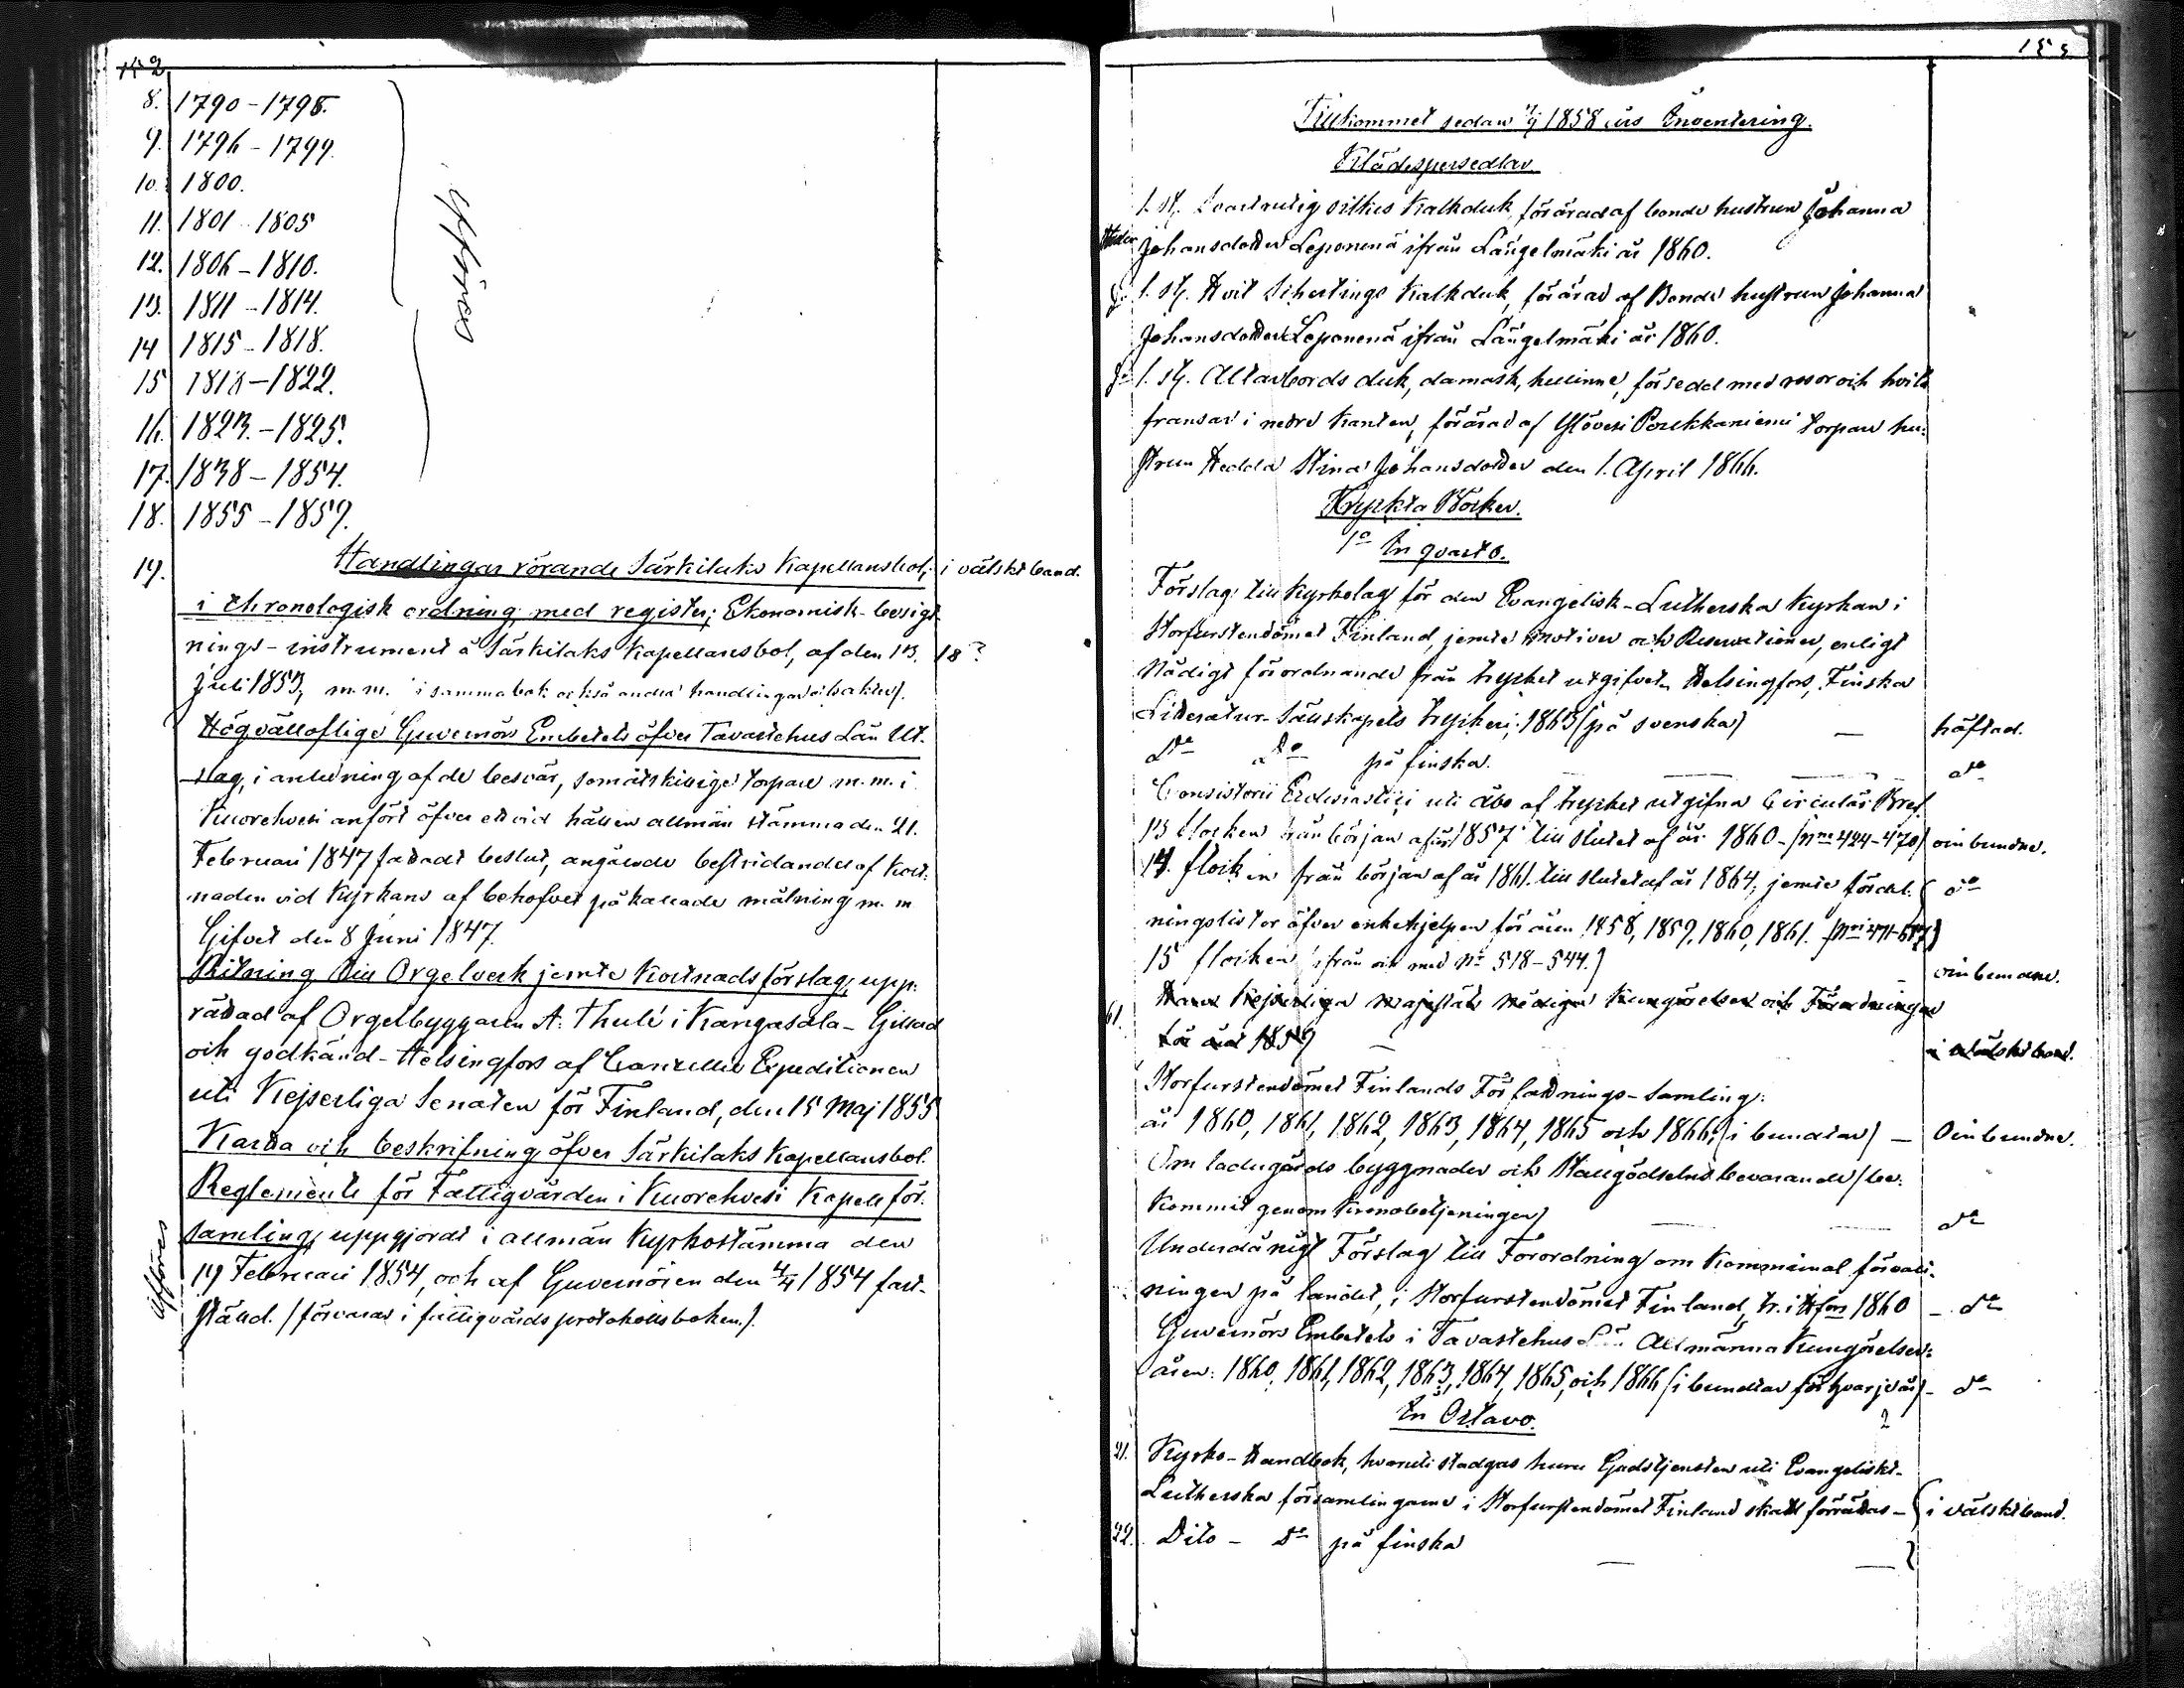 152
8. 1790-1795.
9. 1796-1799.
10. 1800.
11. 1801-1805
12. 1806-1810.
13. 1811-1814.
14 1815-1818.
15 1818-1822.
16. 1823.-1825.
17. 1838-1854.
18. 1855-1859.
19. Handlingar rörande Särkilaks Kapellansbol, i välskt band.
i chronologisk ordning med register; Ekonomisk-besigt-
nings-instrument å Särkilaks Kapellansbol, af den 13. 18?
Juli 1853, m.m. i samma bok också andra handlingar
Högvälloflige Guvernörs Embetets öfver Tavastehus Län Ut-
slag, i anledning af de besvär, som åtskillige torpare m.m. i
Kuorehvesi anfört öfver ett vid hållen allmän stämma den 21.
Februari 1847 fattadt beslut, angående bestridandet af kost-
naden vid Kyrkans af behofvet påkallade målning m. m
Gifvet den 8 Juni 1847.
Ritning till Orgelverk jemte Kostnadsförslag, upp-
rättad af Orgelbyggaren A. Thulé i Kangasala - Gillad
och godkänd - Helsingfors af Canzellie Expeditionen
uti Kejserliga Senaten för Finland, den 15 Maj 1855
Karta och beskrifning öfver Särkilaks Kapellansbol.
Reglemente för Fattigvården i Kuorehvesi Kapell för-
samling, uppgjordt i allmän Kyrkostämma den
19 Februari 1854, och af Guvernören den 4/4 1854 fast-
ställd. (förvaras i fattigvårds protokollsboken.)
Tillkommet sedan 1858 års Inventering.
Klädespersedlar.
1. st. Svartrutig silkes Kalkduk, förärad af bonde hustrun Johanna
Johansdotter Leponenä ifrån Längelmäki år 1860.
1. st. Hvit Schertings Kalkduk, förärad af Bonde hustrun Johanna
Johansdotter Leponenä ifrån Längelmäki år 1860.
1. st. Altarbords duk, damask, hellinne, försedd med rosor och hvita
fransar i nedre kanten, förärad af Ylövesi Poukkaniemi torpare hu-
strun Hedda Stina Johansdotter den 1. April 1866.
Tryckta Böcker.
1o In quarto.
Förslag till Kyrkolag för den Evangelisk-Lutherska Kyrkan i
Storfurstendömet Finland, jemte motiver och Reservationer, enligt
Nådigt förordnande från trycket utgifvet. Helsingfors, Finska
Literatur-Sällskapets tryckeri, 1863 (på svenska) — häftad.
Do Do på finska. — do
Consistorii Ecclesiastici uti Åbo af trycket utgifna Circulär Bref.
13 flocken från början af år 1857 till slutet af år 1860 - (No 424-470) oinbundne.
14. flocken från början af år 1861 till slutet af år 1864, jemte fördel- do
ningslistor öfver enkehjelpen för åren 1858, 1859, 1860, 1861. (No 471-517)
15 flocken (ifrån och med No 518-544.) oinbundne.
61. Hans Kejserliga Majestäts Nådiga Kungörelser och Förordningar
för året 1859 — i välskt band.
Storfurstendömet Finlands Författnings-Samling:
år 1860, 1861, 1862, 1863, 1864, 1865 och 1866, (i bundtar) — Oinbundne.
Om ladugårds byggnader och Stallgödselns bevarande (be-
kommit genom Kronobetjeningen) — do
Underdånigt Förslag till Förordning om Kommunal förvalt-
ningen på landet, i Storfurstendömet Finland, tr. i Hfors 1860 — do
Guvernörs Embetets i Tavastehus Län Allmänna Kungörelser:
åren: 1860, 1861, 1862, 1863, 1864, 1865, och 1866 (i bundtar för hvarje år) — do
In Octavo.
21. Kyrko-Handbok, hvaruti stadgas huru Gudstjensten uti Evangeliskt-
Lutherska församlingarne i Storfurstendömet Finland skall förrättas — i välskt band.
22. Dito - Do på finska —